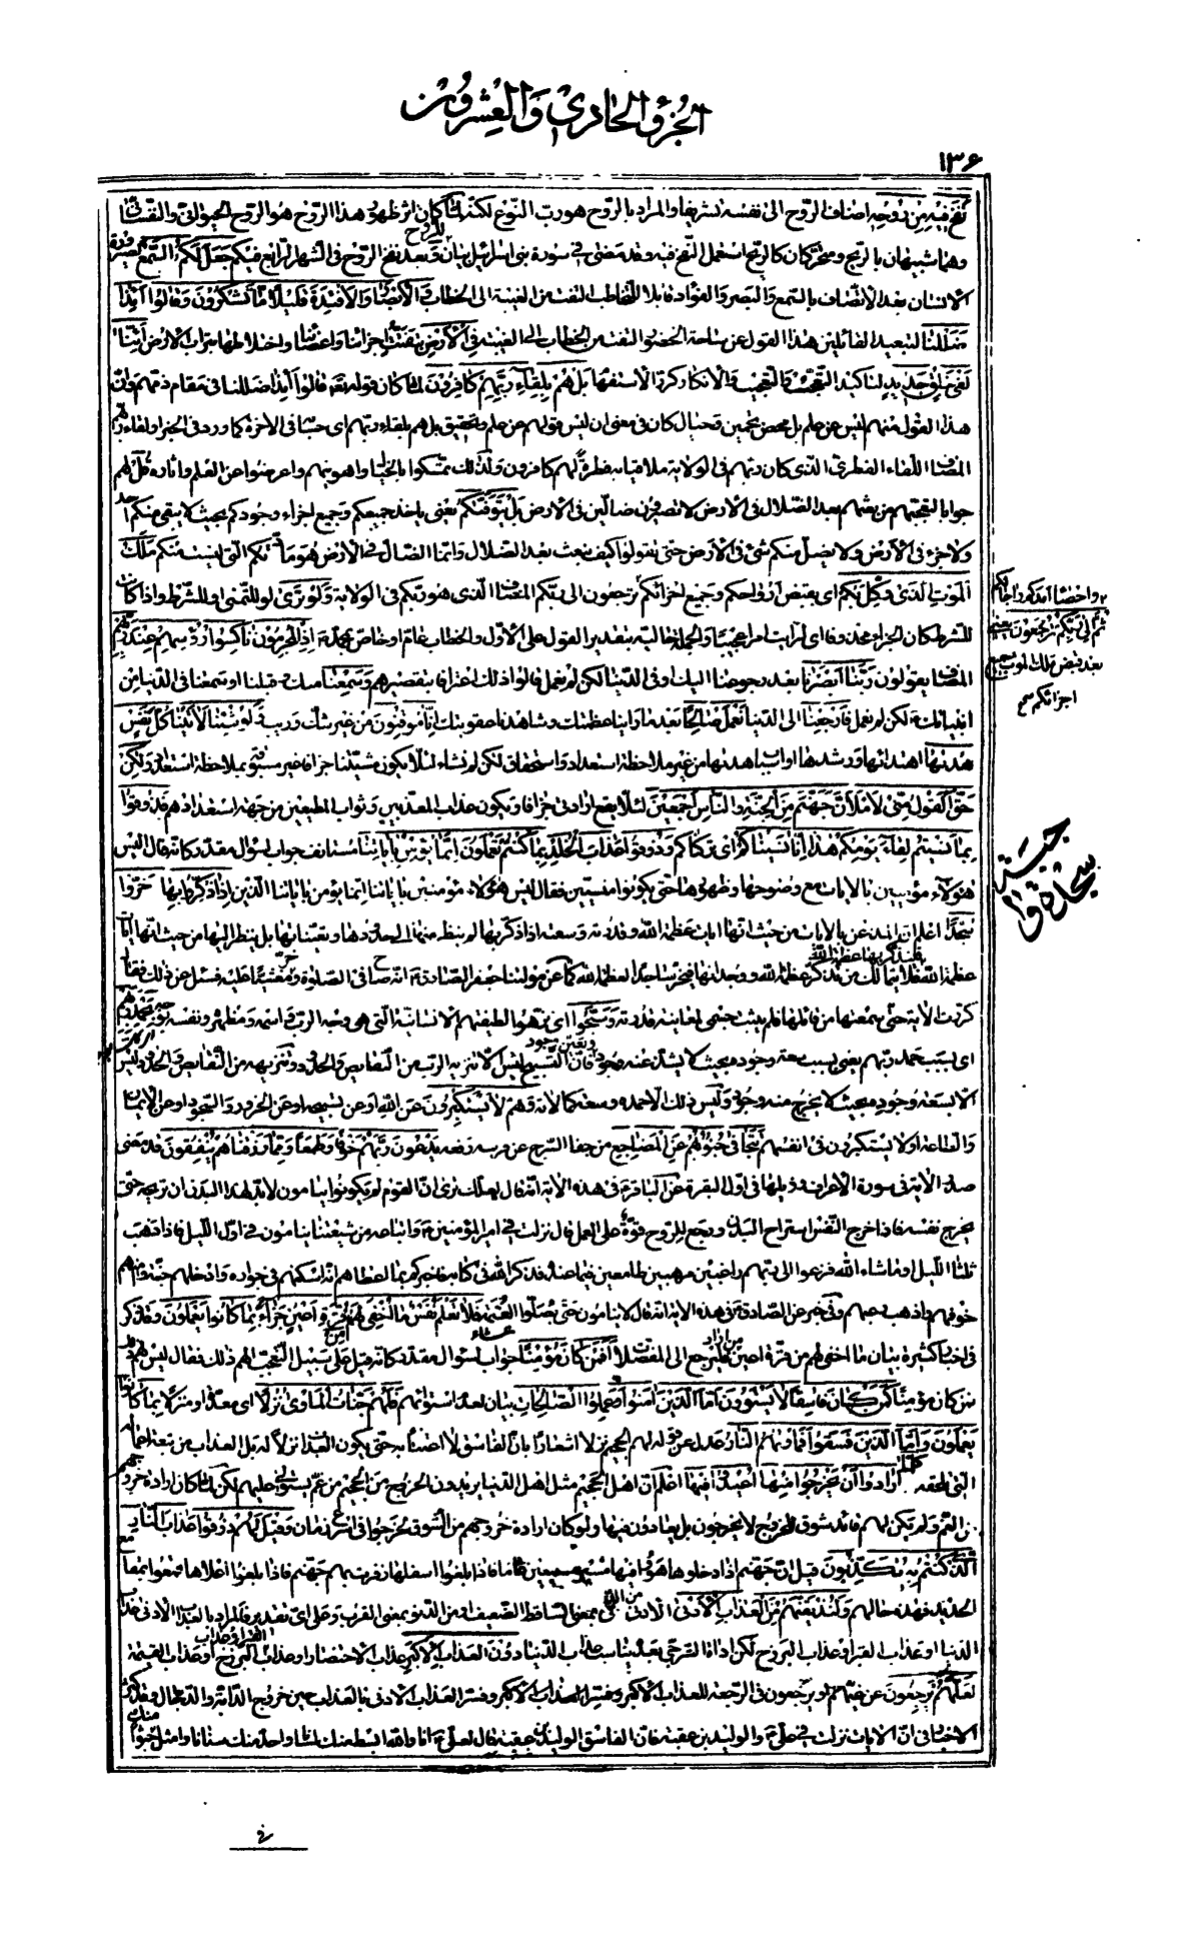 الجزؤ الحادي والعشرون
١٣۶
نفخ فيه من روحه اضاف الروح الى نفسه تشريفا والمراد بالروح هو رب النوع لكنه لما كان اثر ظهور هذا الروح هو الروح الحيواني والنفساني
وهما شبيهان بالريح ومتحركان كالريح استعمل النفخ فيه وقد مضى في سورة بني اسرائيل بيان وبعد نفخ الروح في الشهر الرابع فيكم جعل لكم السمع
الانسان بعد الاتصاف بالسمع والبصر والفؤاد قابلا للتخاطب التفت من الغيبة الى الخطاب والابصار والافئدة قليلا ما تشكرون وقالوا ائذا
ضللنا لتبعيد القائلين هذا القول عن ساحة الحضور التفت من الخطاب الى الغيبة في الارض بتفتت اجزائنا واعضائنا واختلاطها بتراب الارض ائنا
لفي خلق جديد لتاكيد التعجب والتعجيب والانكار كرر الاستفهام بل هم بلقاء ربهم كافرون لما كان قوله تعالى قالوا ائذا ضللنا في مقام ذمهم وان
هذا القول منهم ليس عن علم بل محض تخمين وخيال كان في معنى ان ليس قولهم عن علم وتحقيق بل هم بلقاء ربهم اي حسابي الاخرة كما ورد في الخبر او لقاء ربهم
المضاف اللقاء الفطري الذي كان ربهم في الولاية ملاقيا بفطرة لهم كافرون ولذلك تمسكوا بالخيال واهويتهم واعرضوا عن العلم واثاره قل لهم
جوابا لتعجبهم من بعثهم بعد الضلال في الارض لا تصيرون ضالين في الارض بل يتوفيكم يعني ياخذ جميعكم وجميع اجزاء وجودكم بحيث لا يبقى منكم احد
ولا جزء في الارض ولا يضل منكم شئ في الارض حتى يقولوا كيف نبعث بعد الضلال وانما الضال في الارض هو مادتكم التي ليست منكم ملك
الموت الذي وكل بكم اي يقبض ارواحكم وجميع اجزائكم ترجعون الى ربكم المضاف الذي هو ربكم في الولاية ولو ترى لو للتمني او للشرط واذا كان
للشرط كان الجزاء محذوفا اي لرايت امرا عجيبا والجملة حالية بتقدير القول على الاول والخطاب عام او خاص بمحمد اذ المجرمون ناكسوا رؤسهم عند ربهم
المضاف يقولون ربنا ابصرنا بعد رجوعنا اليك وفي الدنيا لكن لم نعمل قالوا ذلك اعترافا بتقصيرهم وسمعنا منك قبلنا او سمعنا في الدنيا من
انبيائك لكن لم نعمل فارجعنا الى الدنيا نعمل صالحا بعد ما راينا عظمتك وشاهدنا عقوبتك انا موقنون من غير شك وريب ولو شئنا لاتينا كل نفس
هديها اهتدائها ورشدها او اسباب اهدائها من غير ملاحظة استعداد واستحقاق لكن لم نشاء لئلا يكون مشيتنا جزافا غير مسبوق بملاحظة استعداد ولكن
حق القول مني لاملأن جهنم من الجنة والناس اجمعين لئلا يقع ارادتي جزافا ويكون عذاب المعذبين وثواب المطيعين من جهة استعدادهم فذوقوا
بما نسيتم لقاء يومكم هذا انا نسيناكم اي تركناكم وذوقوا عذاب الخلد بما كنتم تعملون انما يؤمن باياتنا مستانف جواب لسؤال مقدر كانه قال اليس
هؤلاء مؤمنين بالايات مع وضوحها وظهورها حتى يكونوا منسيين فقال ليس هؤلاء مؤمنين باياتنا انما يؤمن باياتنا الذين اذا ذكروا بها خروا
سجدا اعلم ان المذعن بالايات من حيث انها ايات عظمة الله وقدرته وسعته اذا ذكر بها لم ينظر منها الى حدودها وتعيناتها بل ينظر اليها من حيث انها ايات
فيتذكر بها عظمة الله
عظمة الله فلا يتمالك من تذكر عظمة الله ووجدانها فيخر ساجدا لعظمة الله كما عن مولينا جعفر الصادق انه صاح في الصلوة وخر مغشيا عليه فسئل عن ذلك فقال
كررت الاية حتى سمعتها من قائلها فلم يثبت جسمي لمعاينة قدرته وسبحوا اي نزهوا لطيفتهم الانسانية التي هي وجه الرب واسمه ومظهره ونفسه بوجه بحمد ربهم
اي بسبب حمد ربهم يعني بسبب سعة وجوده بحيث لا يشذ عنه وجود فان التسبيح ليس الا تنزيه الرب من النقايص والحدود وتنزيهه من النقايص والحدود ليس
الا بسعة وجوده بحيث لا يخرج منه وجود وليس ذلك الا حمده وسعة كمالاته وهم لا يستكبرون عن الله او عن تسبيحه او عن الخرور والسجود او عن الايمان
والطاعة او لا يستكبرون في انفسهم تتجافى جنوبهم عن المضاجع من جفا السرج عن فرسه رفعه يدعون ربهم خوفا وطمعا ومما رزقناهم ينفقون قد مضى
صدر الاية في سورة الاعراف وذيلها في اول البقرة عن الباقر في هذه الاية انه قال لعلك ترى ان القوم لم يكونوا ينامون لا بد لهذا البدن ان تريحه حتى
يخرج نفسه فاذا خرج النفس استراح البدن ورجع للروح قوة على العمل قال نزلت في امير المؤمنين واتباعه من شيعتنا ينامون في اول الليل فاذا ذهب
ثلثا الليل او ما شاء الله فزعوا الى ربهم راغبين مرهبين طامعين فيما عنده فذكر الله في كتابه فاخبركم بما اعطاهم انه اسكنهم في جواره وادخلهم جنته وامنهم
خوفهم واذهب رعبهم وفي خبر عن الصادق في هذه الاية قال لا ينامون حتى يصلوا العتمة فلا تعلم نفس ما اخفي لهم من قرة اعين جزاء بما كانوا يعملون وقد ذكر
في اخبار كثيرة بيان ما اخفي لهم من قرة اعين من اراد فليرجع الى المفصلات افمن كان مؤمنا جواب لسؤال مقدر كانه قيل على سبيل التعجب الهم ذلك فقال ليس لهم
من كان مؤمنا كمن كان فاسقا لا يستوون اما الذين امنوا وعملوا الصالحات بيان لعدم استوائهم فلهم جنات المأوى نزلا اي معدا او منزلا بما كانوا
يعملون واما الذين فسقوا فمأويهم النار عدل عن قوله لهم الجحيم نزلا اشعارا بان الفاسق لا اعتداد به حتى يكون العذاب نزلا له بل العذاب من تبعة اعماله
التي تلحقه كلما ارادوا ان يخرجوا منها اعيدوا فيها اعلم ان اهل الجحيم مثل اهل الدنيا يريدون الخروج من الجحيم من غم يستولي عليهم لكن لما كان ارادة خروجهم
من الغم ولم يكن لهم قائد شوق للخروج لا يخرجون بل يعادون فيها ولو كان ارادة خروجهم من الشوق لخرجوا في اسرع زمان وقيل لهم ذوقوا عذاب النار
الذي كنتم به تكذبون قيل ان جهنم اذا دخلوها هووا فيها مسيرة سبعين عاما فاذا بلغوا اسفلها زفرت بهم جهنم فاذا بلغوا اعلاها قمعوا بمقامع
الحديد فهذه حالهم ولنذيقنهم من العذاب الادنى الادنى من الدني بمعنى الساقط الضعيف او من الدنو بمعنى القرب وعلى اي تقدير فالمراد بالعذاب الادنى عذاب
الدنيا او عذاب القبر او عذاب البرزخ لكن اداة الترجي بعد يناسب عذاب الدنيا دون العذاب الاكبر عذاب الاحتضار او عذاب القبر او عذاب البرزخ او عذاب القيمة
لعلهم يرجعون عن غيهم او يرجعون في الرجعة للعذاب الاكبر وفسر العذاب الاكبر وفسر العذاب الادنى بالعذاب حين خروج الدابة والدجال وقد ذكر
الاخبار في ان الايات نزلت في علي والوليد بن عقبة فان الفاسق الوليد بن عقبة قال لعلي انا والله ابسط منك لسانا واحد منك سنانا وامثل جثوا منك
واختصار ابدانكم واجالكم
ثم الى ربكم ترجعون يعني
بعد قبض ملك الموت جميع
اجزائكم
سجدة واجبة
في